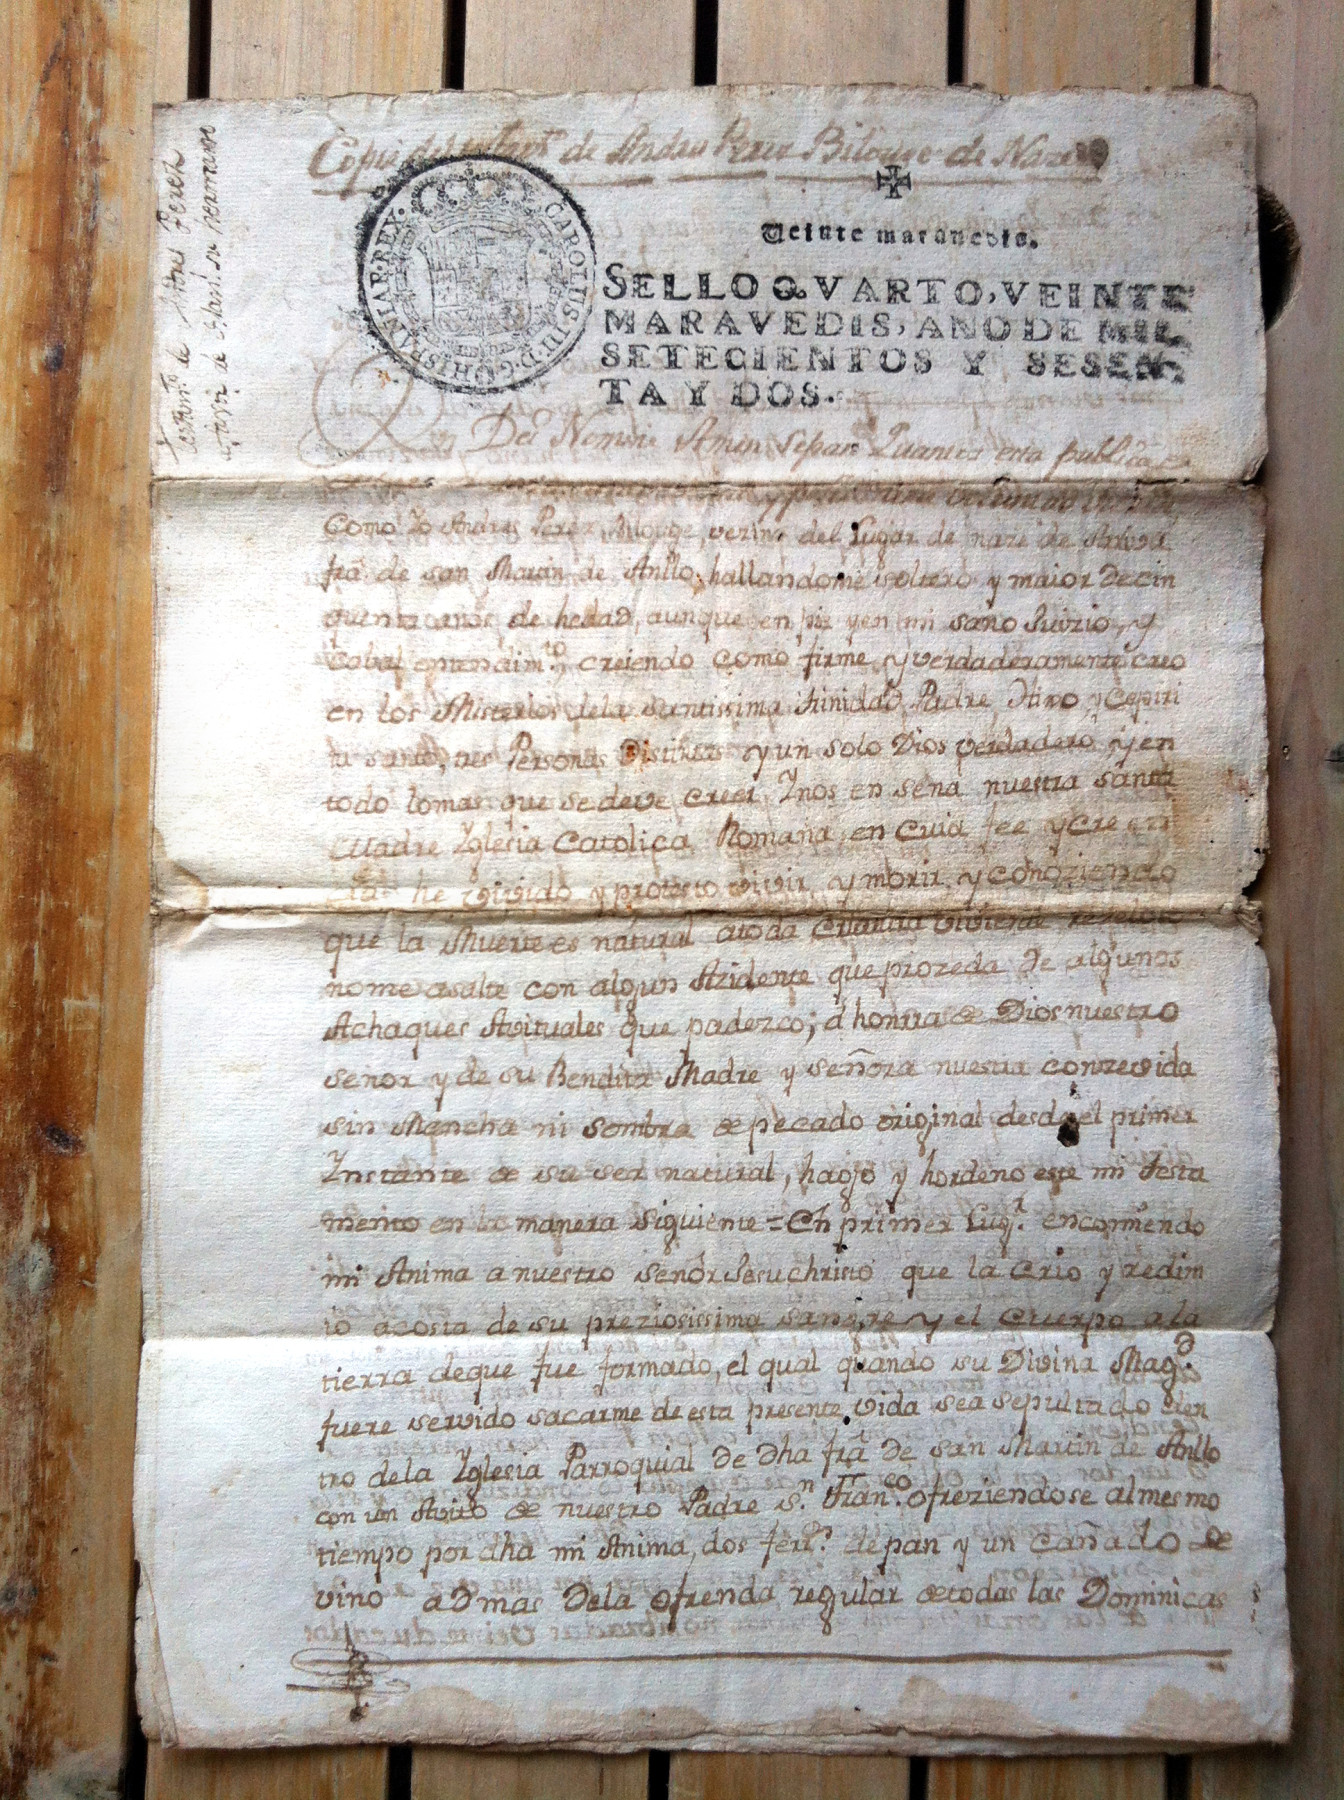 Copia del testamᵗᵒ de Andres Perez Bilouge de Nare
testamᵗᵒ de Andres Perez
Veinte maravedis.
SELLO QVARTO, VEINTE
MARAVEDIS, AÑO DE MIL
SETECIENTOS Y SESEN
TA Y DOS.
CAROLUS III D G HISPANIAR REX
Nomvre Amen Sepan Quantos esta publica
Como Yo Andres Perez Bilouge, vezino del Lugar de nare de
frâ de san Martin de Anllo, hallandome soltero y maior de cin
quenta años de hedad, aunque en pie y en mi sano Juizio, y
Cabal entendimᵗᵒ, creiendo como firme, y verdaderamente creo
en los Misterios dela santissima trinidad, Padre, Hixo, y espiri
tu santo, tres Personas Distintas y un solo Dios verdadero, y en
todo lo mas que se deve creer, Ynos en sena nuestra santa
Madre Yglesia Catolica Romana, en cuia fee y cre en
he vivido y protesto vivir, y morir, y conoziendo
que la Muerte es natural atoda Criatura viviente
nome asalte con algun Azidente que prozeda de algunos
Achaques Avituales que padezco; á honrra de Dios nuestro
señor y de su Bendita Madre y señora nuestra conzevida
sin Mancha ni sombra de pecado original desde el primer
Ynstante de su ser natural, hago y hordeno este mi testa
mento en la manera siguiente = En primer Lugʳ. encomiendo
mi Anima a nuestro señor Jesuchristo que la Crio y redim
io acosta de su preziosissima sangre y el Cuerpo ala
tierra deque fue formado, el qual quando su Divina Magᵈ.
fuere servido sacarme de esta presente vida sea sepultado den
tro dela Yglesia Parroquial de dha frâ de san Martin de Anllo
con un Avito de nuestro Padre sⁿ. Franᶜᵒ. ofreziendose al mesmo
tiempo por dha mi Anima, dos ferrˢ. de pan y un cañado de
vino ademas dela ofrenda regular de todas las Dominicas